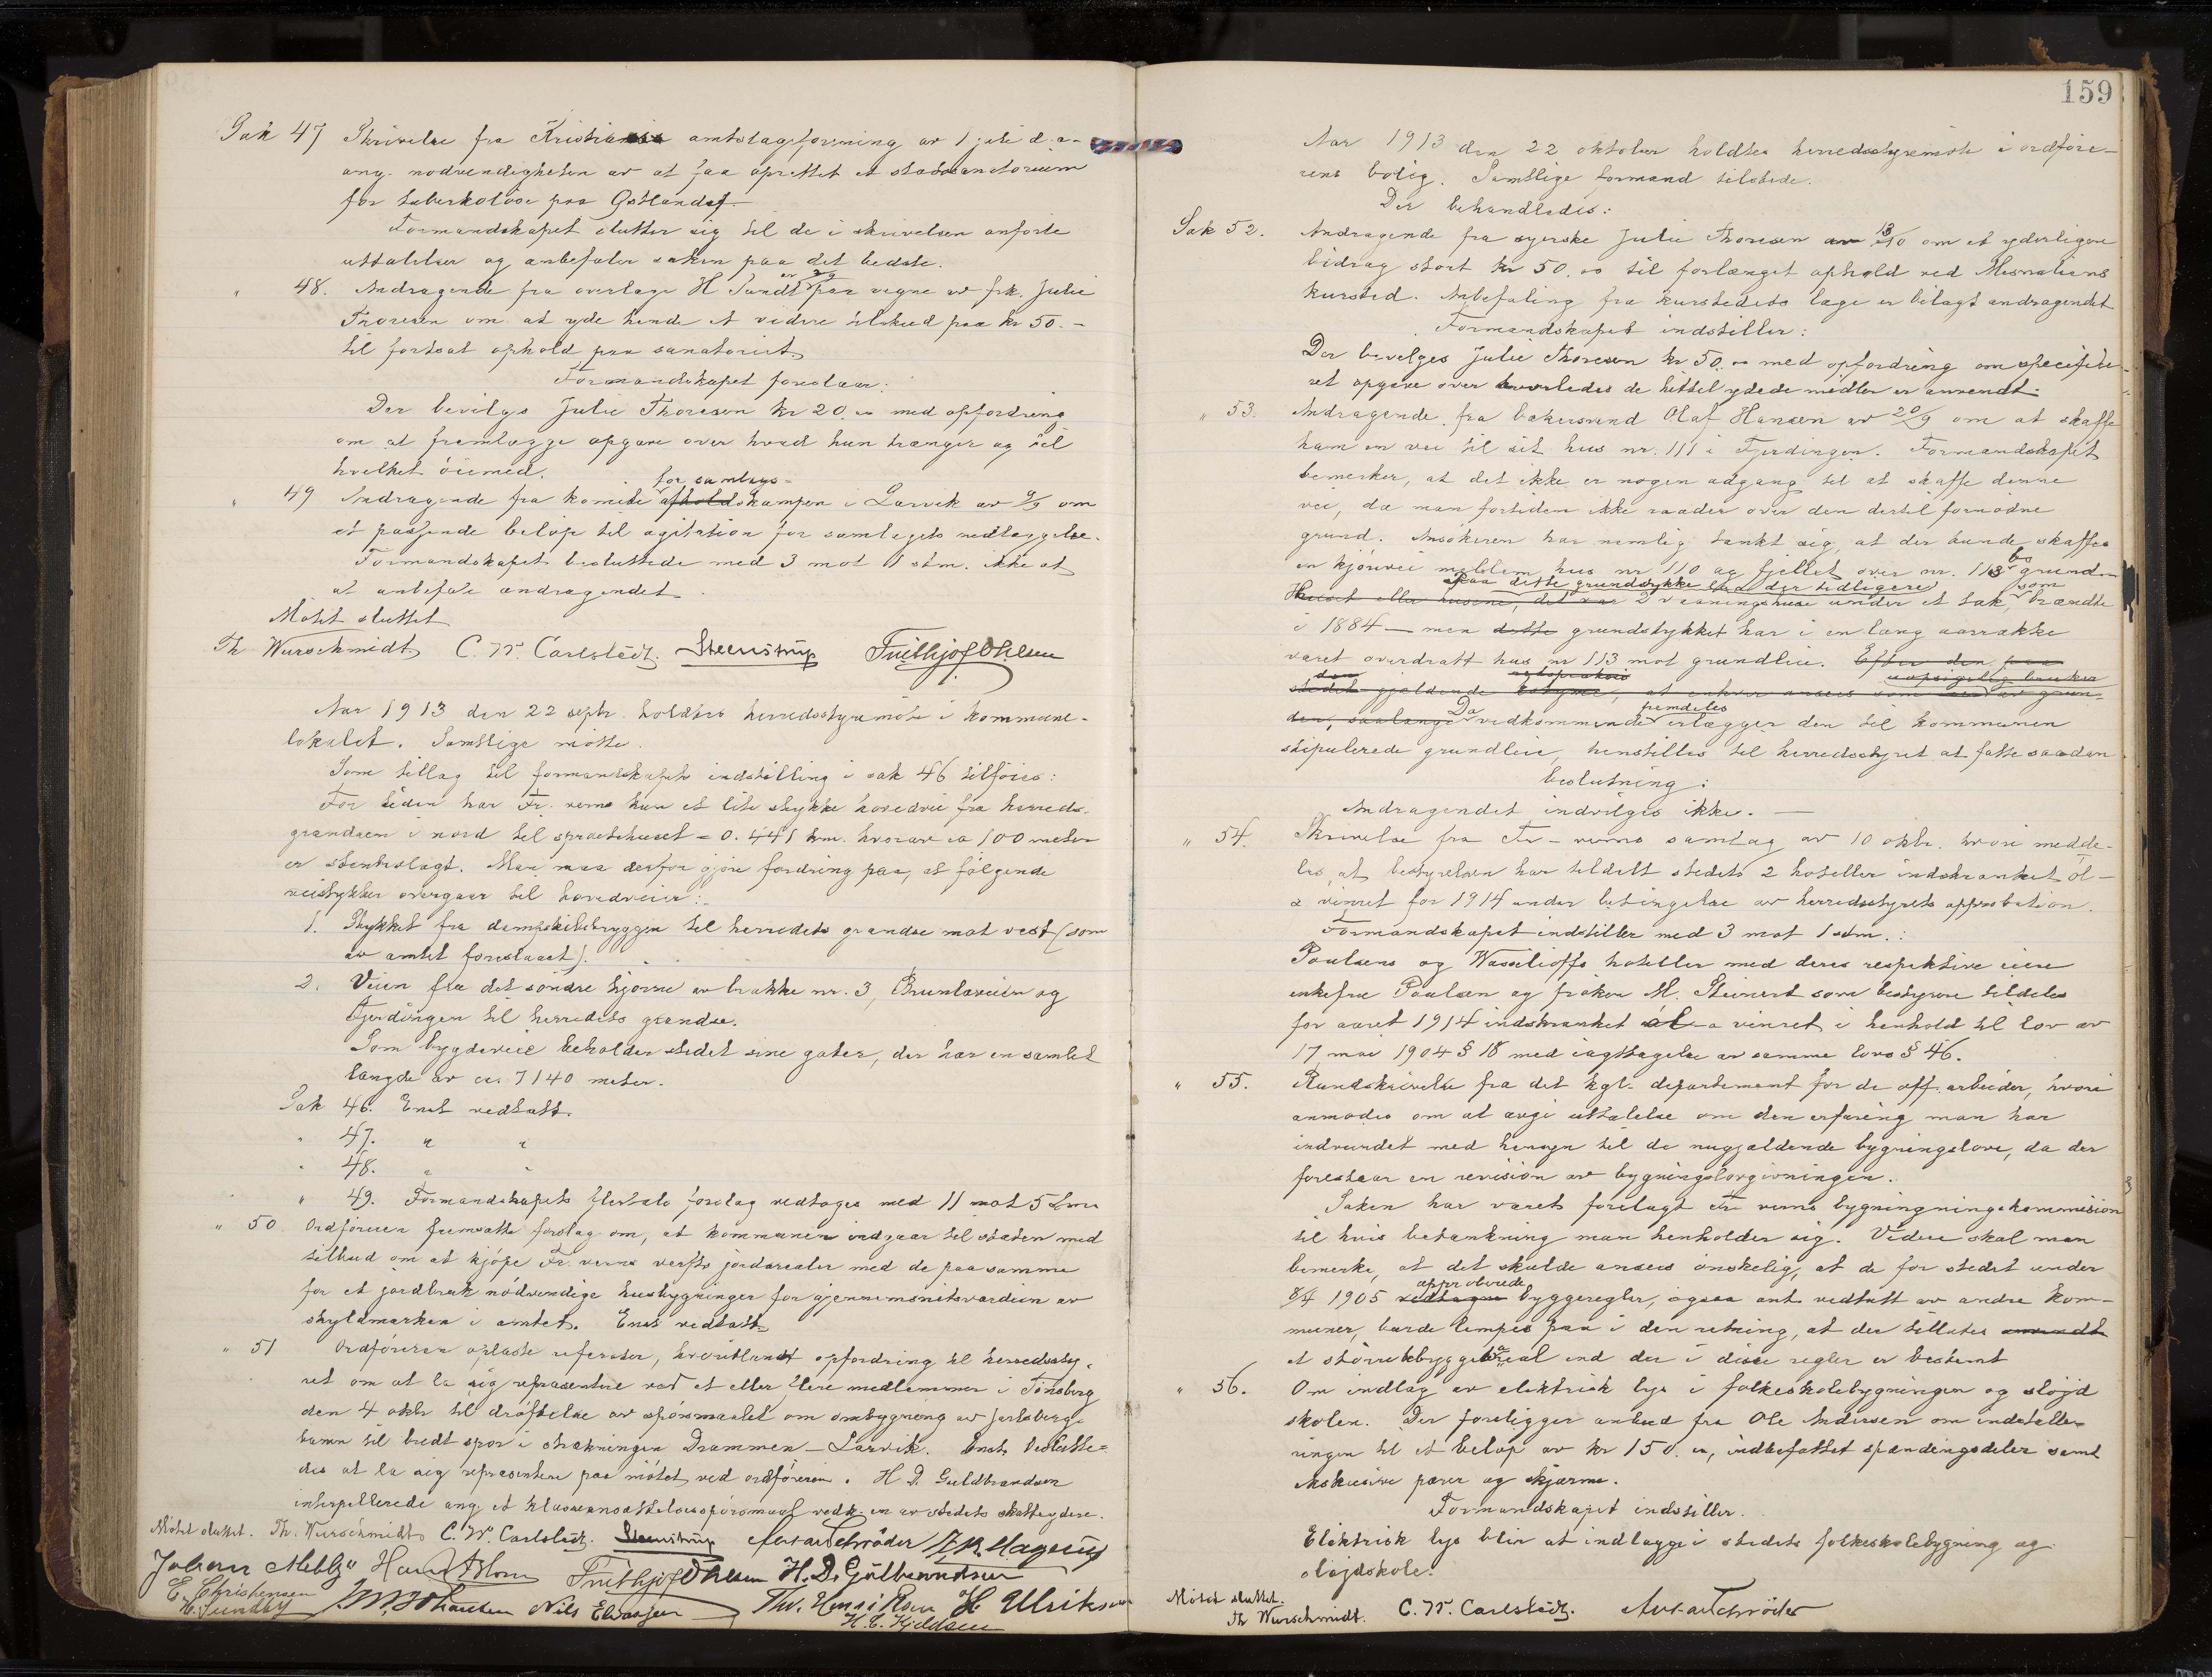 Sak 47 Skrivelse fra Kristiania amtslægeforening av 1 juli d.a.
ang. nødvendigheten av at faa oprettet et statssanatorium
for tuberkuløse paa Østlandet.
Formandskapet slutter sig til de i skrivelsen anførte
uttalelser og anbefaler saken paa det bedste.
" 48. Andragende fra overlæge H Sundt av 2/9 paa vegne av frk. Julie
Thoresen om at yde hende et videre tilskud paa kr 50.-
til fortsat ophold paa sanatoriet.
Formandskapet foreslaar:
Der bevilges Julie Thoresen kr 20.00 med opfordring
om at fremlægge opgave over hvad hun trænger og til
hvilket øiemed.
for samlags-
" 49 Andragende fra komite afholdskampen i Larvik av 9/9 om
et passende beløp til agitation for samlagets nedlæggelse.
Formandskapet besluttede med 3 mot 1 stm. ikke at
at anbefale andragendet.
Møtet sluttet
Th Wurschmidt C. W. Carlstedt. Steenstrup Frithjof Ohlsen
Aar 1913 den 22 septr. holdtes herredsstyremøte i kommune-
lokalet. Samtlige møtte.
Som tillæg til formandskapets indstilling i sak 46 tilføies:
For tiden har Fr. værns kun et lite stykke hovedvei fra herreds-
grændsen i nord til sprøitehuset = 0.441 km. hvorav ca 100 meter
er stenbrolagt. Man maa derfor gjøre fordring paa, at følgende
veistykker overgaar til hovedveier:
1. Stykket fra dampskibsbryggen til herredets grændse mot vest (som
av amtet foreslaaet).
2. Veien fra det søndre hjørne av brakke nr. 3, Brunlaveien og
Fjerdingen til herredets grændse.
Som bygdeveie beholder stedet sine gater, der har en samlet
længde av ca. 7140 meter.
Sak 46. Enst. vedtatt.
" 47. " "
" 48. " "
" 49. Formandskapets flertals forslag vedtages med 11 mot 5 stm
" 50. Ordføreren fremsatte forslag om, at kommunen indgaar til staten med
tilbud om at kjøpe Fr. værns verfts jordarealer med de paa samme
for et jordbruk nødvendige husbygninger for gjennemsnitsværdien av
skyldmarken i amtet. Enst. vedtatt.
" 51 Ordføreren oplæste referater, hvoriblandt opfordring til herredssty-
ret om at la sig repræsentere ved et eller flere medlemmer i Tønsberg
den 4 oktbr til drøftelse av spørsmaalet om ombygning av Jarlsberg-
banen til bredt spor i strækningen Drammen-Larvik. Enst. beslutte-
des at la sig repræsentere paa møtet ved ordføreren. H. D. Guldbrandsen
interpellerede ang. et klasseansættelsesspørsmaal vedk. en av stedets skatteydere.
Møtet sluttet. Th. Wurschmidt C. W. Carlstedt. Steenstrup
Frithjof Ohlsen H. D. Gulbrandsen
E. Christensen
H. Sundby Nils H. Ulriksen
159
Aar 1913 den 22 oktober holdtes herredsstyremøte i ordføre-
rens bolig. Samtlige formænd tilstede.
Der behandledes:
Sak 52. Andragende fra syerske Julie Thoresen av 13/10 om et yderligere
bidrag stort kr 50.00 til forlænget ophold ved Mesnaliens
kursted. Anbefaling fra kurstedets læge er bilagt andragendet
Formandskapet indstiller:
Der bevilges Julie Thoresen kr 50.00 med opfordring om specifice-
ret opgave over hvorledes de hittil ydede midler er anvendt.
" 53. Andragende fra bakersvend Olaf Hansen av 20/9 om at skaffe
ham en vei til sit hus nr. 111 i Fjerdingen. Formandskapet
bemerker, at det ikke er nogen adgang til at skaffe denne
vei, da man fortiden ikke raader over den dertil fornødne
grund. Ansøkeren har nemlig tænkt sig, at der kunde skaffes
en kjørevei mellem hus nr 110 og fjellet over nr. 113 grund.
Paa dette grundstykke laa der tidligere som
Huset eller husene, det var 2 vaaningshuse under et tak, brændte
i 1884 — men dette grundstykket har i en lang aarrække
været overdratt hus nr 113 mot grundleie. Efter den paa
stedet gjældende at enhver ansees som av grun-
Da fremdeles
den, saalænge vedkommende erlægger den til kommunen
stipulerede grundleie, henstilles til herredsstyret at fatte saadan
beslutning:
Andragendet indvilges ikke. —
" 54. Skrivelse fra Fr-værns samlag av 10 oktbr. hvori medde-
les, at bestyrelsen har tildelt stedets 2 hoteller indskrænket øl-
& vinret for 1914 under betingelse av herredsstyrets approbation.
Formandskapet indstiller med 3 mot 1 stm.:
Paulsens og Wassilioffs hoteller med deres respektive eiere
enkefru Paulsen og frøken M. Steinert som bestyrere tildeles
for aaret 1914 indskrænket øl- & vinret i henhold til lov av
17 mai 1904 § 18 med iagttagelse av samme lovs § 46.
" 55. Rundskrivelse fra det kgl. departement for de off. arbeider, hvori
anmodes om at avgi uttalelse om den erfaring man har
indvundet med hensyn til de nugjældende bygningslove, da der
forestaar en revision av bygningslovgivningen.
Saken har været forelagt Fr. værns bygningningskommision
til hvis betænkning man henholder sig. Videre skal man
bemerke, at det skulde ansees ønskelig, at de for stedet under
approberede
8/4 1905 vedtagne byggeregler, ogsaa ant. vedtatt av andre kom-
muner, burde lempes paa i den retning, at der tillates anvendt
et større bebygget areal end der i disse regler er bestemt
" 56. Om indlæg av elektrisk lys i folkeskolebygningen og sløjd
skolen. Der foreligger anbud fra Ole Andersen om indstalle-
ringen til et beløp av kr 150.00, indbefattet spændingsdeler samt
exklusive pærer og skjærme.
Formandskapet indstiller.
Elektrisk lys blir at indlægge i stedets folkeskolebygning og
sløjdskole.
Møtet sluttet.
Th Wurschmidt. C. W. Carlstedt.